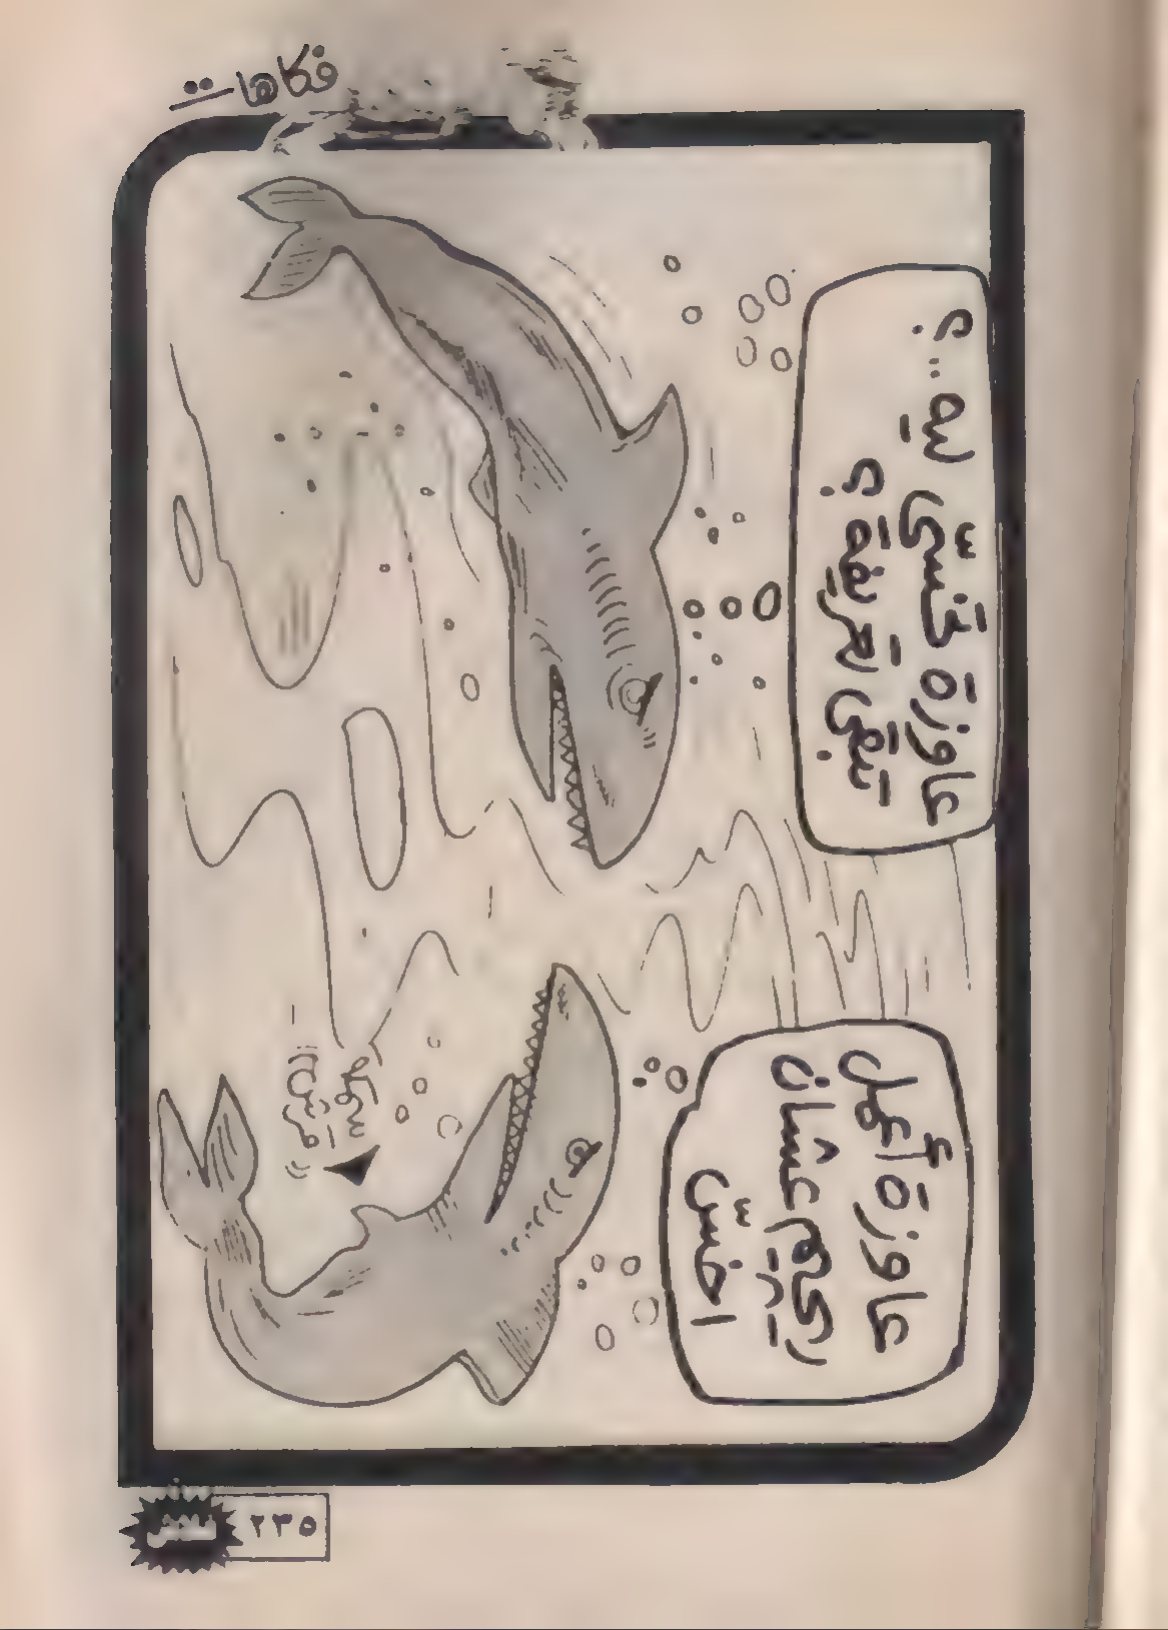 فكاهات
عاوزة أعمل
ريجيم عشان
اخسّ
عاوزة تخسّى ليه ..؟
تبقى تعريفة؟
قرش!!
٢٣٥
فلاش